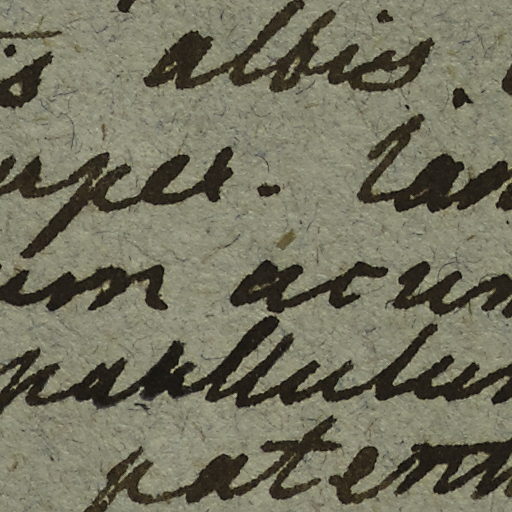 s albis.
uper. lan
um acum
paullulum
patent